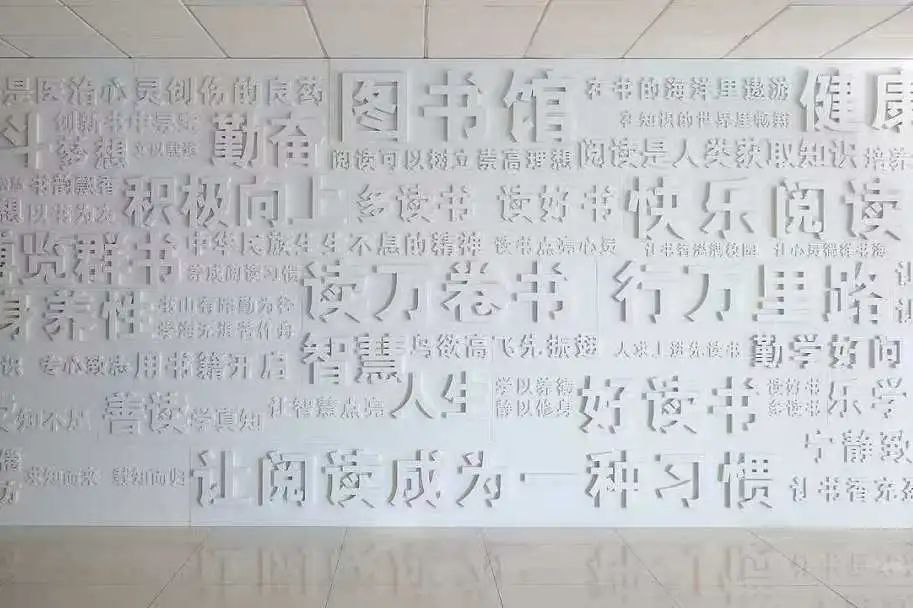 是医治心灵创伤的良药
图书馆
在书的海洋里遨游
健康
斗
梦想
勤奋
在知识的世界里畅翔
阅读可以树立崇高理想
阅读是人类获取知识
培养
想以书为友
积极向上
多读书
读好书
快乐阅读
博览群书
中华民族生生不息的精神
读书点亮心灵
让书香溢满校园
养成阅读习惯
读万卷书
行万里路
身养性
书山有路勤为径
学海无涯苦作舟
智慧
鸟欲高飞先振翅
人求上进先读书
勤学好问
专心致志
用书籍开启
人生
学以养德
静以修身
好读书
读好书
多读书
乐学
善读
学真知
让智慧点亮
宁静致
求知而来
载知而归
让阅读成为一种习惯
让书香充